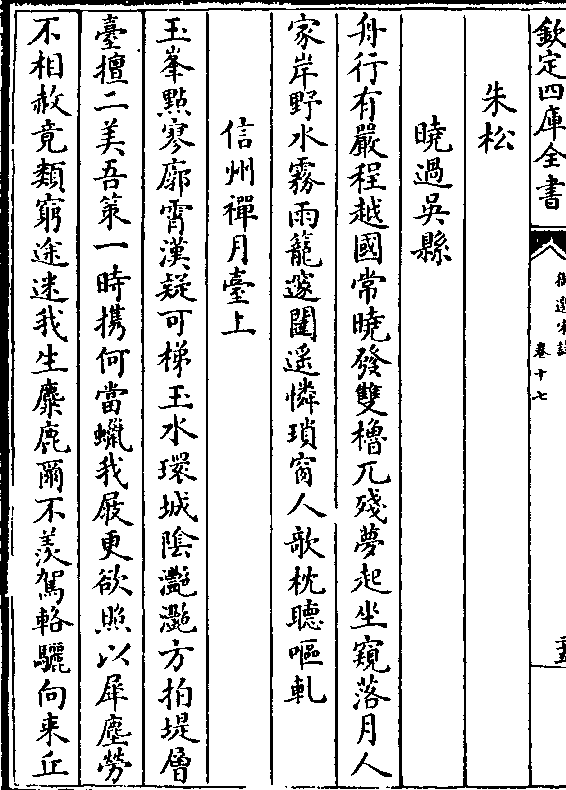 欽定四庫全書
御選宋詩
卷十七
朱松
曉過吳縣
舟行有嚴程越國常曉發雙櫓兀殘夢起坐窺落月人
家岸野水霧雨籠邃闥遥憐瑣窗人欹枕聽嘔軋
信州禪月臺上
玉峯點寥廓霄漢疑可梯玉水環城陰灔灔方拍堤層
臺擅二美吾策一時攜何當蠟我屐更欲照以犀塵勞
不相赦竟類窮途迷我生麋鹿爾不羨駕輅驪向来丘